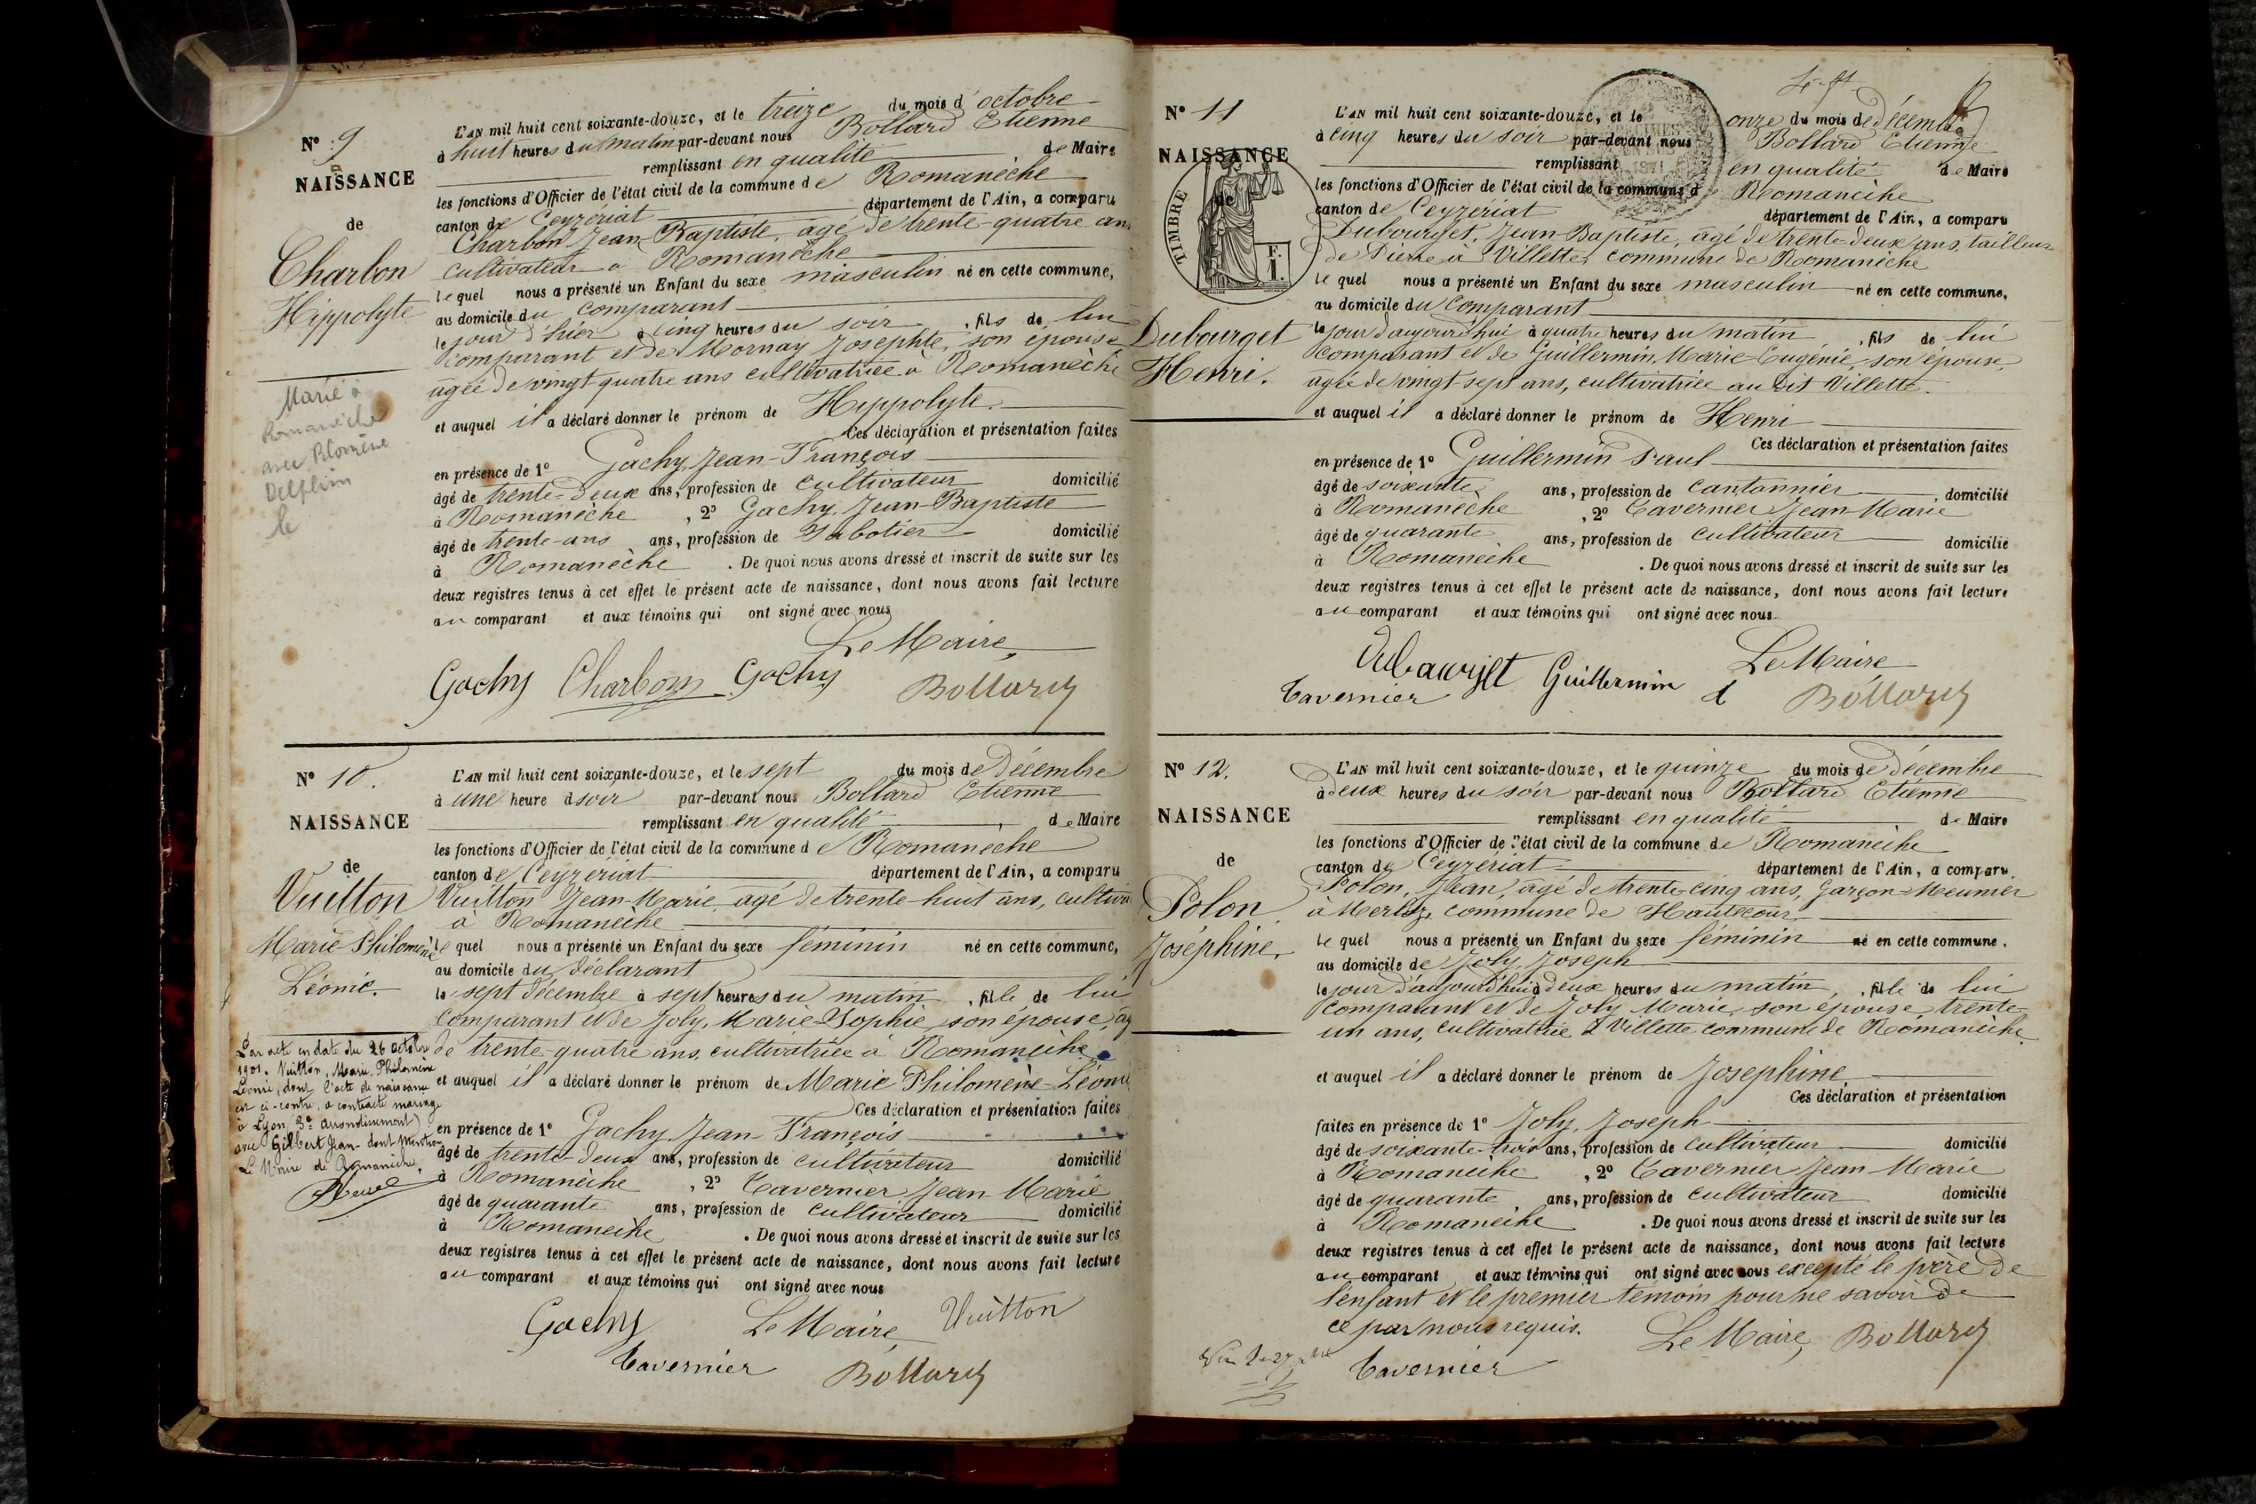 Nº 9
NAISSANCE
de
Charbon
Hippolyte
Marié à
Romanèche
avec Philomène
Delphin
le
L'AN mil huit cent soixante-douze, et le treize du mois d'octobre
à huit heures du matin par-devant nous Bollard Etienne
remplissant en qualité de Maire
les fonctions d'Officier de l'état civil de la commune de Romanèche
canton de Ceyzériat département de l'Ain, a comparu
Charbon Jean-Baptiste, agé de trente-quatre ans
cultivateur à Romanèche
lequel nous a présenté un Enfant du sexe masculin né en cette commune,
au domicile du comparant
le jour d'hier à cinq heures du soir, fils de lui
comparant et de Mornay Josephte, son épouse
agée de vingt quatre ans cultivatrice à Romanèche
et auquel il a déclaré donner le prénom de Hippolyte.
Ces déclaration et présentation faites
en présence de 1º Gachy, Jean-François
âgé de trente-deux ans, profession de cultivateur domicilié
à Romanèche, 2º Gachy, Jean-Baptiste
âgé de trente-ans ans, profession de Sabotier domicilié
à Romanèche. De quoi nous avons dressé et inscrit de suite sur les
deux registres tenus à cet effet le présent acte de naissance, dont nous avons fait lecture
au comparant et aux témoins qui ont signé avec nous
Le Maire,
Gachy Charbon Gachy Bollard
Nº 10.
NAISSANCE
de
Vuitton
Marie-Philomène
Léonie.
Par acte en date du 26 octobre
1901. Vuitton, Marie, Philomène
Léonie, dont l'acte de naissance
est ci-contre, a contracté mariage
à Lyon, 3e arrondissement
avec Gilbert Jean - dont mention
Le Maire de Romanèche,
L'AN mil huit cent soixante-douze, et le sept du mois de Décembre
à une heure d soir par-devant nous Bollard Etienne
remplissant en qualité de Maire
les fonctions d'Officier de l'état civil de la commune de Romanèche
canton de Ceyzériat département de l'Ain, a comparu
Vuitton Jean-Marie agé de trente-huit ans, cultiva
à Romanèche
lequel nous a présenté un Enfant du sexe féminin né en cette commune,
au domicile du déclarant
le sept décembre à sept heures du matin, fille de lui
comparant et de Joly, Marie-Sophie, son épouse, ag
de trente-quatre ans, cultivatrice à Romanèche
et auquel il a déclaré donner le prénom de Marie Philomène-Léonie
Ces déclaration et présentation faites
en présence de 1º Gachy, Jean-François
âgé de trente-deux ans, profession de cultivateur domicilié
à Romanèche, 2º Tavernier Jean-Marie
âgé de quarante ans, profession de cultivateur domicilié
à Romanèche. De quoi nous avons dressé et inscrit de suite sur les
deux registres tenus à cet effet le présent acte de naissance, dont nous avons fait lecture
au comparant et aux témoins qui ont signé avec nous
Gachy Le Maire, Vuitton
Tavernier Bollard
Nº 11
NAISSANCE
de
TIMBRE
Dubourget
Henri.
L'AN mil huit cent soixante-douze, et le onze du mois de décembre
à cinq heures du soir par-devant nous Bollard Etienne
remplissant en qualité de Maire
les fonctions d'Officier de l'état civil de la commune d Romanèche
canton de Ceyzériat département de l'Ain, a comparu
Dubourget, Jean-Baptiste, agé de trente-deux ans, tailleur
de Pierre à Villette, commune de Romanèche
lequel nous a présenté un Enfant du sexe masculin né en cette commune,
au domicile du comparant
le jour d'aujourd'hui à quatre heures du matin, fils de lui
comparant et de Guillermin, Marie-Eugénie, son épouse,
agée de vingt sept ans, cultivatrice au dit Villette.
et auquel il a déclaré donner le prénom de Henri
Ces déclaration et présentation faites
en présence de 1º Guillermin Paul
âgé de soixante ans, profession de cantonnier, domicilié
à Romanèche, 2º Tavernier Jean-Marie
âgé de quarante ans, profession de cultivateur domicilié
à Romanèche. De quoi nous avons dressé et inscrit de suite sur les
deux registres tenus à cet effet le présent acte de naissance, dont nous avons fait lecture
au comparant et aux témoins qui ont signé avec nous
Le Maire
Dubourget Guillermin
Tavernier Bollard
Nº 12.
NAISSANCE
de
Polon
Joséphine.
L'AN mil huit cent soixante-douze, et le quinze du mois de décembre
à deux heures du soir par-devant nous Bollard Etienne
remplissant en qualité de Maire
les fonctions d'Officier de l'état civil de la commune de Romanèche
canton de Ceyzériat département de l'Ain, a comparu
Polon, Jean, agé de trente-cinq ans, Garçon-Meunier
à Merloz, commune de Hautecour
lequel nous a présenté un Enfant du sexe féminin né en cette commune.
au domicile de Joly, Joseph
le jour d'aujourd'hui à deux heures du matin, fille de lui
comparant et de Joly Marie, son épouse, trente-
un ans, cultivatrice à Villette commune de Romanèche
et auquel il a déclaré donner le prénom de Joséphine
Ces déclaration et présentation
faites en présence de 1º Joly, Joseph
âgé de soixante-trois ans, profession de cultivateur domicilié
à Romanèche, 2º Tavernier Jean-Marie
âgé de quarante ans, profession de cultivateur domicilié
à Romanèche. De quoi nous avons dressé et inscrit de suite sur les
deux registres tenus à cet effet le présent acte de naissance, dont nous avons fait lecture
au comparant et aux témoins qui ont signé avec nous excepté le père de
l'enfant et le premier témoin pour ne savoir de
ce par nous requis.
Le Maire, Bollard
Tavernier